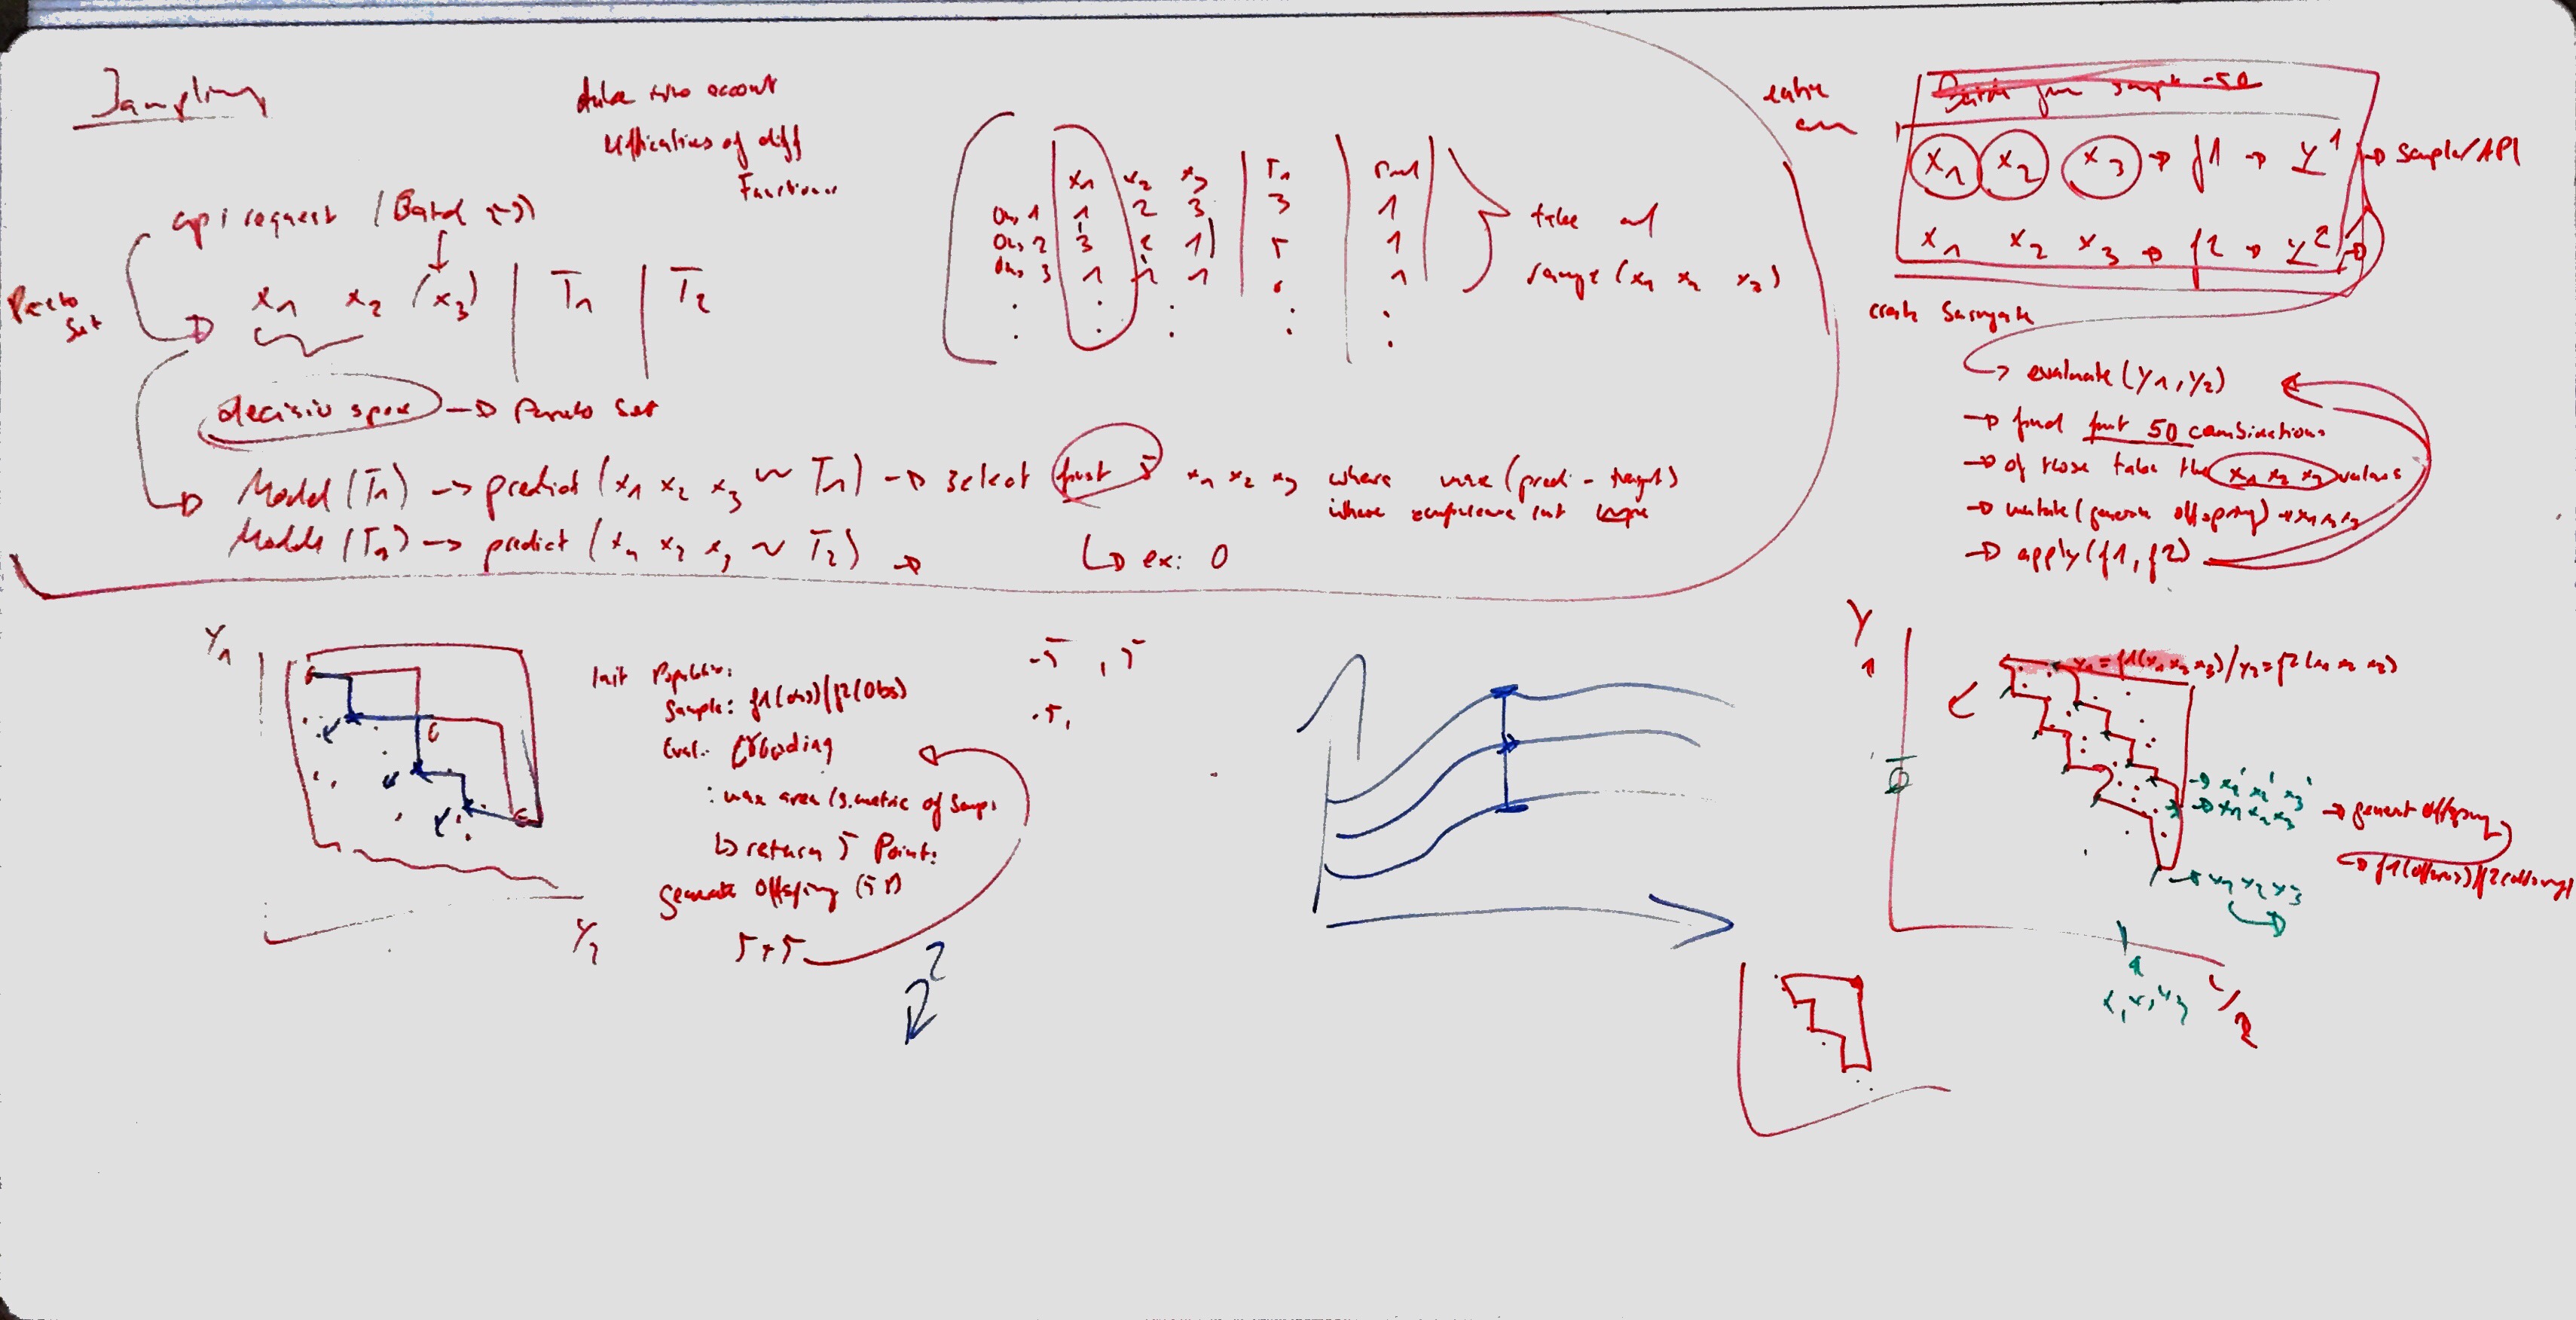 Sampling
take into account
of diff
Functions
api request (Batch
x1 x2 (x3) | T1 | T2
Pareto
Set
decision space → Pareto Set
Model (T1) → predict (x1 x2 x3 ~ T1) → select first 5 x1 x2 x3 where max (pred - target)
where confidence int large
Models (T2) → predict (x1 x2 x3 ~ T2) →
↳ ex: 0
x1 x2 x3 T1
Obs 1 1 2 3 3 1
Obs 2 3 2 1 5 1
Obs 3 1 1 1 1
take
range (x1 x2 x3)
x1 x2 x3 → f1 → Y1 → sampler API
x1 x2 x3 → f2 → Y2
create Surrogate
→ evaluate (Y1, Y2)
→ find first 50 combinations
→ of those take the x1 x2 x3 values
→ mutate (generate offspring) x1 x2 x3
→ apply (f1, f2)
Y1
Y2
Init Population:
Sample: f1(obs)/f2(Obs)
Eval.: Crowding
: max area (S.metric of
↳ return 5 Points
Generate Offspring (5)
5+5
-5, 5
-5,
R2
Y1
y1 = f1(x1 x2 x3)/y2 = f2(x1 x2 x3)
→ x1' x2' x3'
→ x1 x2 x3 → generate Offspring
→ f1(offspring)/f2(offspring)
→ x1 x2 x3
Y2